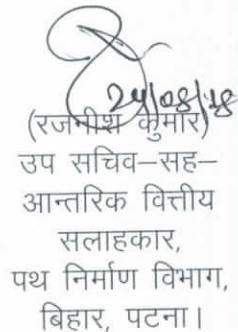 24/08/18
(रजनीश कुमार)
उप सचिव–सह–
आन्तरिक वित्तीय
सलाहकार,
पथ निर्माण विभाग,
बिहार, पटना।